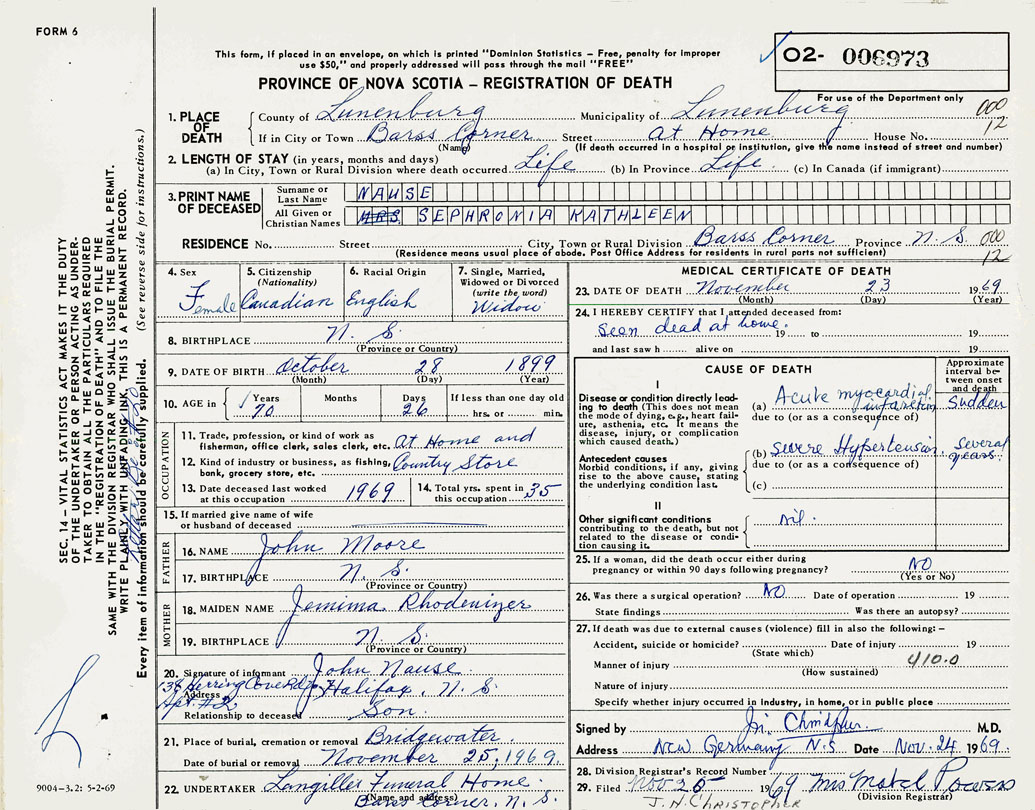 FORM 6
This form, if placed in an envelope, on which is printed "Dominion Statistics – Free, penalty for improper
use $50," and properly addressed will pass through the mail "FREE"
02- 006973
PROVINCE OF NOVA SCOTIA – REGISTRATION OF DEATH
For use of the Department only
1. PLACE OF DEATH
County of Lunenburg Municipality of Lunenburg 000
If in City or Town Barss Corner Street At Home House No. 12
(Name) (If death occurred in a hospital or institution, give the name instead of street and number)
2. LENGTH OF STAY (in years, months and days)
(a) In City, Town or Rural Division where death occurred Life (b) In Province Life (c) In Canada (if immigrant)
3. PRINT NAME OF DECEASED
Surname or Last Name NAUSE
All Given or Christian Names MRS SEPHRONIA KATHLEEN
RESIDENCE No. Street City, Town or Rural Division Barss Corner Province N. S. 000
(Residence means usual place of abode. Post Office Address for residents in rural parts not sufficient) 12
4. Sex Female
5. Citizenship (Nationality) Canadian
6. Racial Origin English
7. Single, Married, Widowed or Divorced (write the word) Widow
8. BIRTHPLACE N. S.
(Province or Country)
9. DATE OF BIRTH October 28 1899
(Month) (Day) (Year)
10. AGE in Years 70 Months Days 26 If less than one day old hrs. or min.
OCCUPATION
11. Trade, profession, or kind of work as
fisherman, office clerk, sales clerk, etc. At Home and
12. Kind of industry or business, as fishing,
bank, grocery store, etc. Country Store
13. Date deceased last worked
at this occupation 1969
14. Total yrs. spent in
this occupation 35
15. If married give name of wife
or husband of deceased
FATHER
16. NAME John Moore
17. BIRTHPLACE N. S.
(Province or Country)
MOTHER
18. MAIDEN NAME Jemima Rhodenizer
19. BIRTHPLACE N. S.
(Province or Country)
20. Signature of informant John Nause
138 Herring Cove Rd
Address Apt. #2 Halifax, N. S.
Relationship to deceased Son.
21. Place of burial, cremation or removal Bridgewater
Date of burial or removal November 25, 1969.
22. UNDERTAKER Langilles Funeral Home
(Name and address) Barss Corner, N. S.
MEDICAL CERTIFICATE OF DEATH
23. DATE OF DEATH November 23 1969
(Month) (Day) (Year)
24. I HEREBY CERTIFY that I attended deceased from:
seen dead at home. 19 to 19
and last saw h alive on 19
CAUSE OF DEATH
Approximate interval between onset and death
I
Disease or condition directly leading to death (This does not
mean the mode of dying, e.g., heart failure, asthenia, etc. It means the
disease, injury, or complication
which caused death.)
(a) Acute myocardial infarction Sudden
due to (or as a consequence of)
Antecedent causes
Morbid conditions, if any, giving
rise to the above cause, stating
the underlying condition last.
(b) Severe Hypertension Several years.
due to (or as a consequence of)
(c)
II
Other significant conditions
contributing to the death, but not
related to the disease or condition causing it.
nil.
25. If a woman, did the death occur either during
pregnancy or within 90 days following pregnancy? NO
(Yes or No)
26. Was there a surgical operation? NO Date of operation 19
State findings Was there an autopsy?
27. If death was due to external causes (violence) fill in also the following: –
Accident, suicide or homicide? Date of injury 19
(State which)
Manner of injury 410.0
(How sustained)
Nature of injury
Specify whether injury occurred in industry, in home, or in public place
Signed by M.D.
Address New Germany N.S Date Nov. 24 1969.
28. Division Registrar's Record Number
29. Filed Nov 25 1969 Mrs Mabel
(Division Registrar)
J. H. CHRISTOPHER
SEC. 14 – VITAL STATISTICS ACT MAKES IT THE DUTY
OF THE UNDERTAKER OR PERSON ACTING AS UNDER-
TAKER TO OBTAIN ALL THE PARTICULARS REQUIRED
IN THE "REGISTRATION OF DEATH" AND TO FILE THE
SAME WITH THE DIVISION REGISTRAR WHO SHALL ISSUE THE BURIAL PERMIT.
WRITE PLAINLY WITH UNFADING INK. THIS IS A PERMANENT RECORD.
Every item of information should be carefully supplied. (See reverse side for instructions.)
9004–3.2: 5-2-69